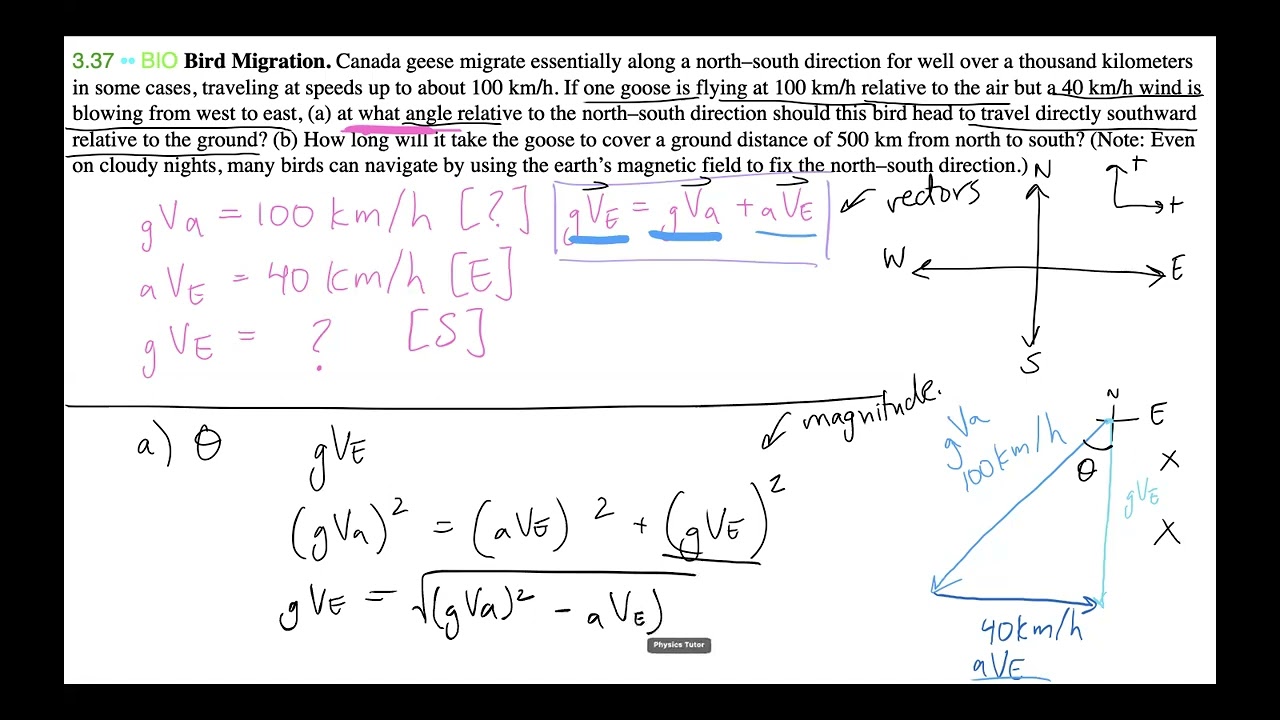 3.37 •• BIO Bird Migration. Canada geese migrate essentially along a north–south direction for well over a thousand kilometers
in some cases, traveling at speeds up to about 100 km/h. If one goose is flying at 100 km/h relative to the air but a 40 km/h wind is
blowing from west to east, (a) at what angle relative to the north–south direction should this bird head to travel directly southward
relative to the ground? (b) How long will it take the goose to cover a ground distance of 500 km from north to south? (Note: Even
on cloudy nights, many birds can navigate by using the earth's magnetic field to fix the north–south direction.)
gVa = 100 km/h [?]
gVE = gVa + aVE
vectors
N
+
+
aVE = 40 km/h [E]
W
E
gVE = ? [S]
S
magnitude.
a) θ
gVE
(gVa)² = (aVE)² + (gVE)²
gVE = √(gVa)² - aVE)
N
E
gVa
100km/h
θ
X
gVE
X
40km/h
aVE
Physics Tutor